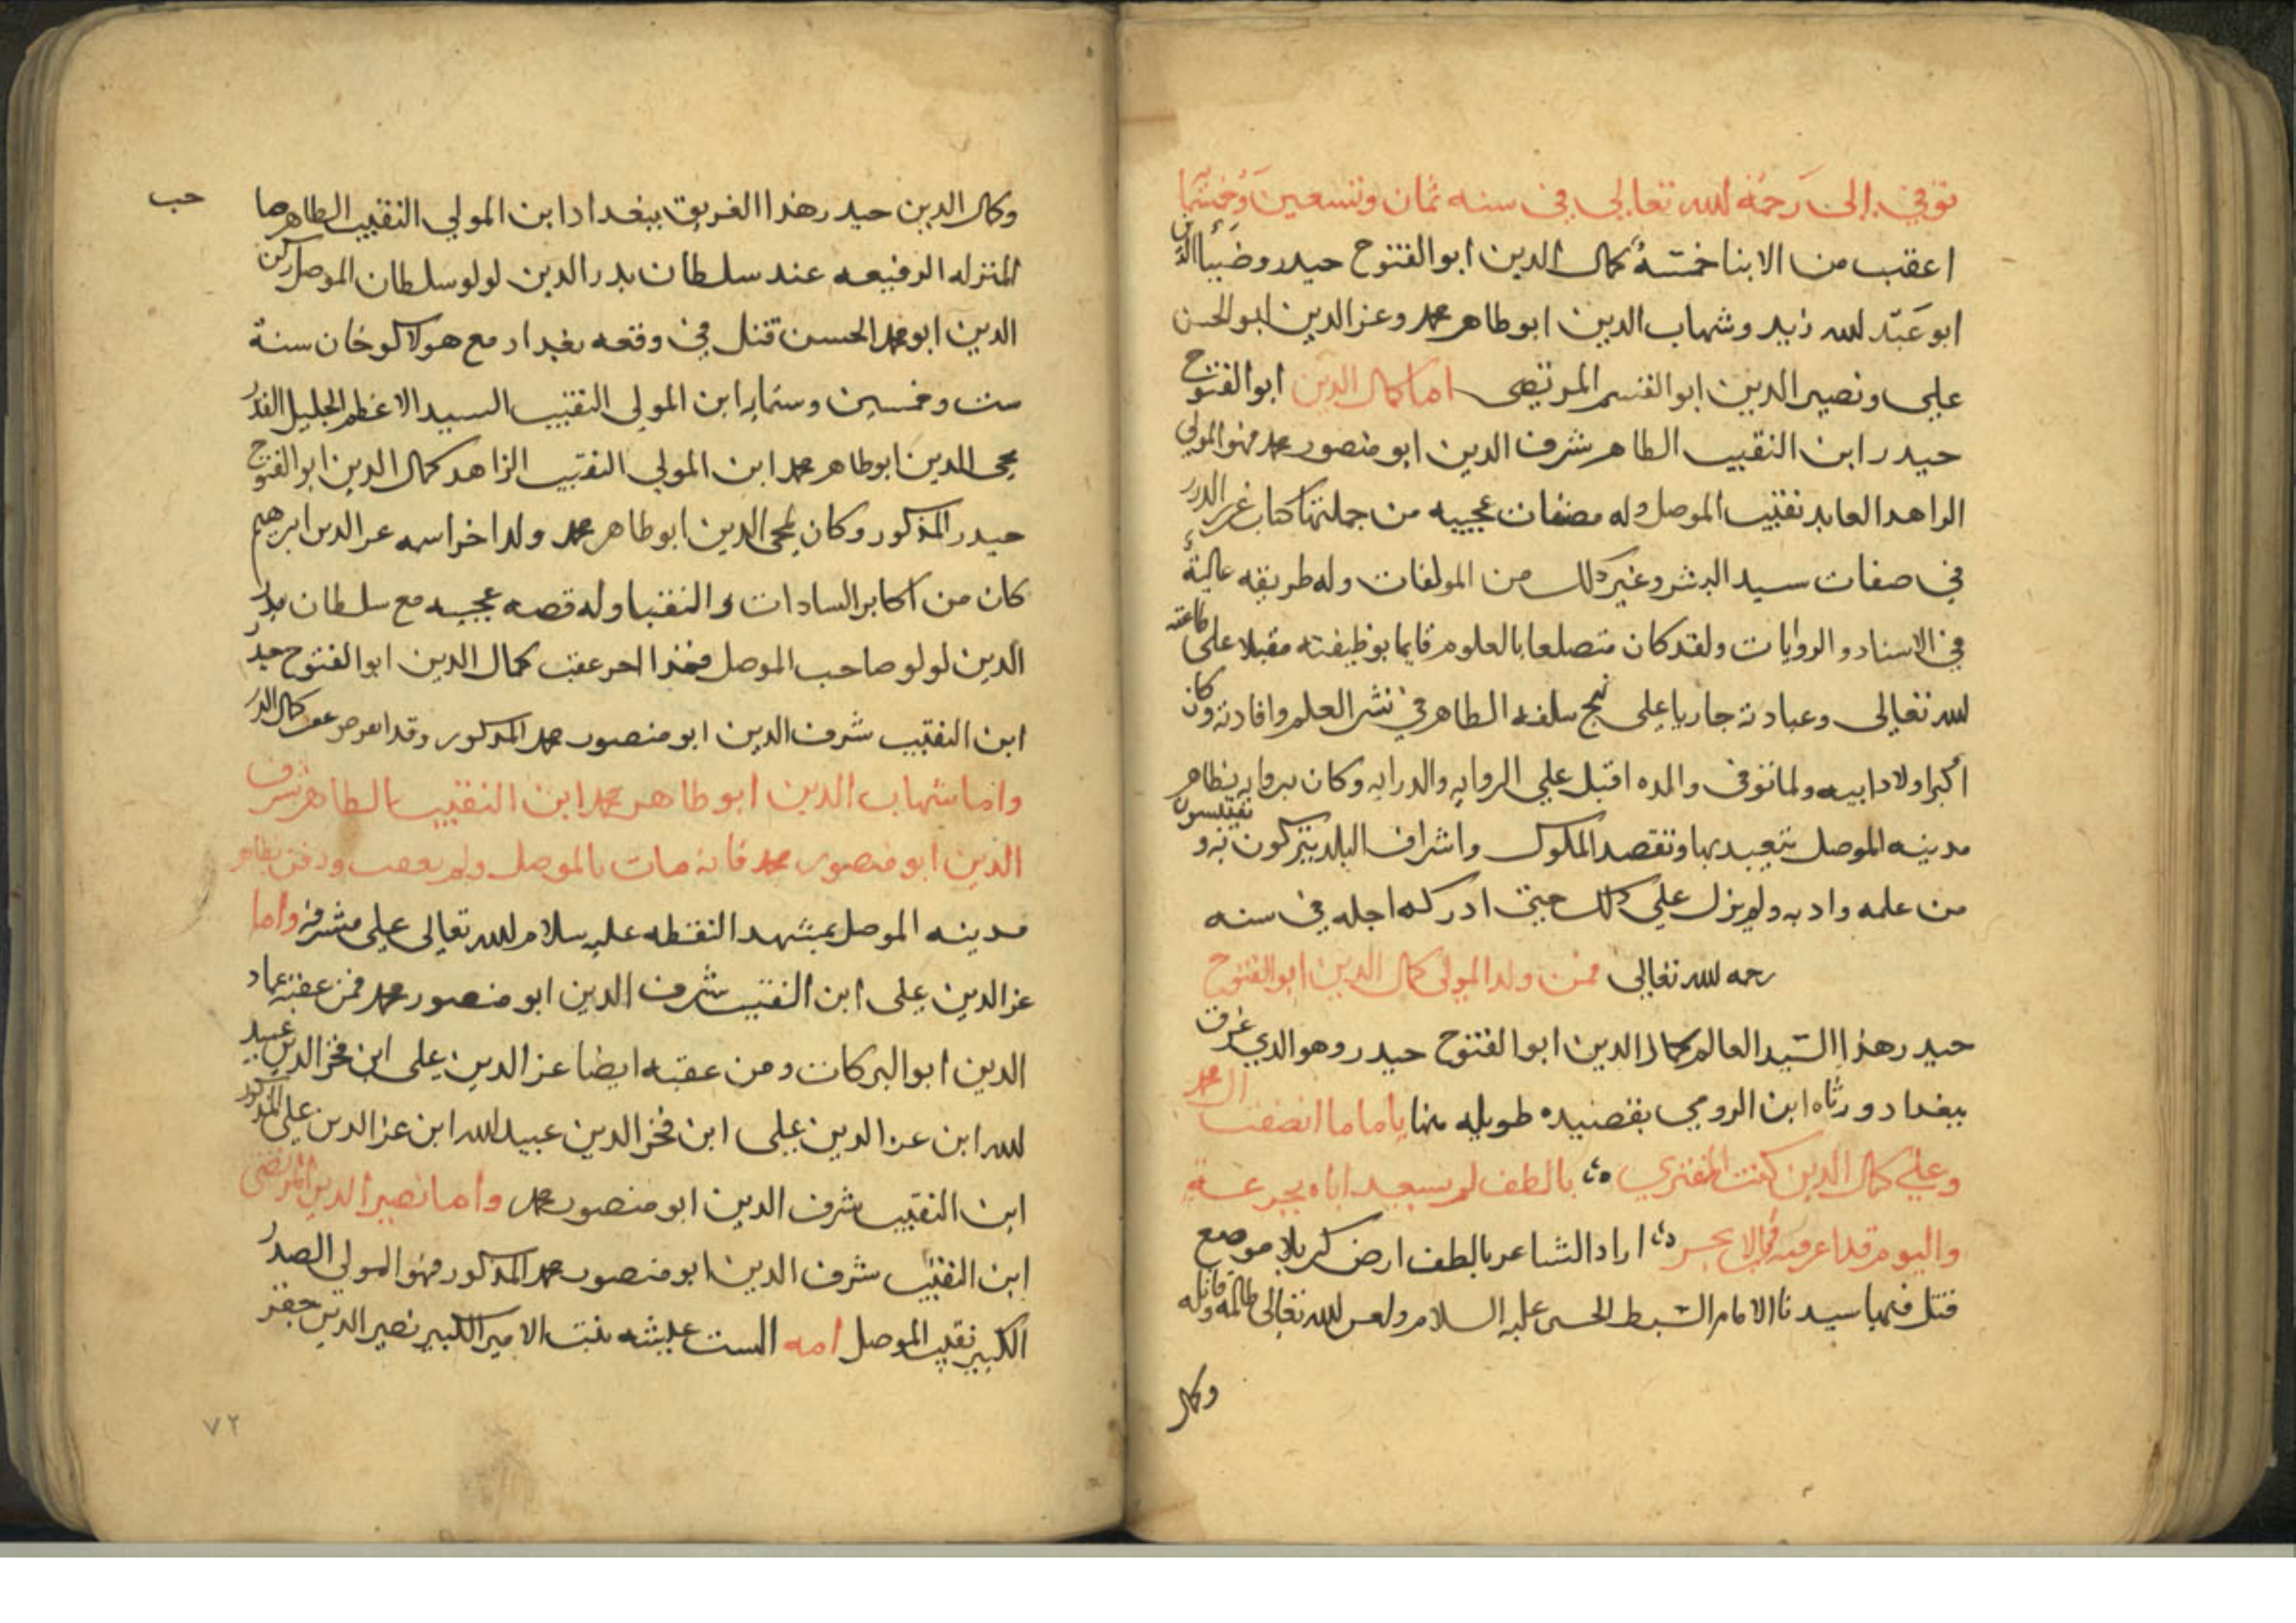 توفي الى رحمة الله تعالى في سنه ثمان وتسعين وخمسمايه
اعقب من الابنا خمسة كمال الدين ابو الفتوح حيدر وضيا الدين
ابو عبد الله زيد وشهاب الدين ابو طاهر محمد وعز الدين ابو الحسن
علي ونصير الدين ابو القسم المرتضى اما كمال الدين ابو الفتوح
حيدر ابن النقيب الطاهر شرف الدين ابو منصور محمد فهو المولي
الزاهد العابد نقيب الموصل وله مصنفات عجيبه من جملتها كتاب غرر الدرر
في صفات سيد البشر وغير ذلك من المولفات وله طريقه عالية
في الاسناد والروايات ولقد كان متصلعا بالعلوم قايما بوظيفته مقبلا على طاعته
الله تعالى وعبادته جاريا على نهج سلفه الطاهر في نشر العلم وافادته وكان
اكبر اولاد ابيه ولما توفى والده اقبل علي الروايه والدرايه وكان برواية بظاهر
مدينه الموصل يتعبد بها وتقصد الملوك واشراف البلد يتبركون به و يقتبسون
من علمه وادبه ولم يزل علي ذلك حتى ادركه اجله في سنه
رحمه الله تعالى فمن ولد المولى كمال الدين ابو الفتوح
حيدر هذا السيد العالم كمال الدين ابو الفتوح حيدر وهو الدي غرق
ببغداد ورثاه ابن الرومي بقصيده طويله منها يا ماما انصفت ال محمد
وعلى كمال الدين كنت المفتري بالطف لم يسعد اباه بجرعة
واليوم قد اغرقته في الابحر اراد الشاعر بالطف ارض كربلا موضع
قتل فيها سيدنا الامام السبط الحسن عليه السلام ولعن الله تعالى ظالمه وقاتله
وكمال
حب
وكمال الدين حيدر هذا الغريق ببغداد ابن المولي النقيب الطاهر صا
المنزله الرفيعه عند سلطان بدر الدين لولو سلطان الموصل ركن
الدين ابو محمد الحسن قتل في وقعه بغداد مع هولاكو خان سنة
ست وخمسين وستمايه ابن المولى النقيب السيد الاعظم الجليل القدر
محي الدين ابو طاهر محمد ابن المولي النقيب الزاهد كمال الدين ابو الفتوح
حيدر المذكور وكان لمحي الدين ابو طاهر محمد ولد اخر اسمه عز الدين ابرهيم
كان من اكابر السادات والنقبا وله قصه عجيبه مع سلطان بدر
الدين لولو صاحب الموصل فهذا اخر عقب كمال الدين ابو الفتوح حيدر
ابن النقيب شرف الدين ابو منصور محمد المذكور وقد انقرض عقب كمال الدين
واما شهاب الدين ابو طاهر محمد ابن النقيب الطاهر شرف
الدين ابو منصور محمد فانه مات بالموصل ولم يعقب ودفن بظاهر
مدينه الموصل بمشهد النقطه عليه سلام الله تعالى على مشرفه واما
عز الدين على ابن النقيب شرف الدين ابو منصور محمد فمن عقبه عماد
الدين ابو البركات ومن عقبه ايضا عز الدين علي ابن فخر الدين عبيد
الله ابن عز الدين علي ابن فخر الدين عبيد الله ابن عز الدين علي المذكور
ابن النقيب شرف الدين ابو منصور محمد واما نصير الدين المرتضى
ابن النقيب شرف الدين ابو منصور محمد المذكور فهو المولى الصدر
الكبير نقيب الموصل امه الست عايشه بنت الامير الكبير نصير الدين جقر
٧٢